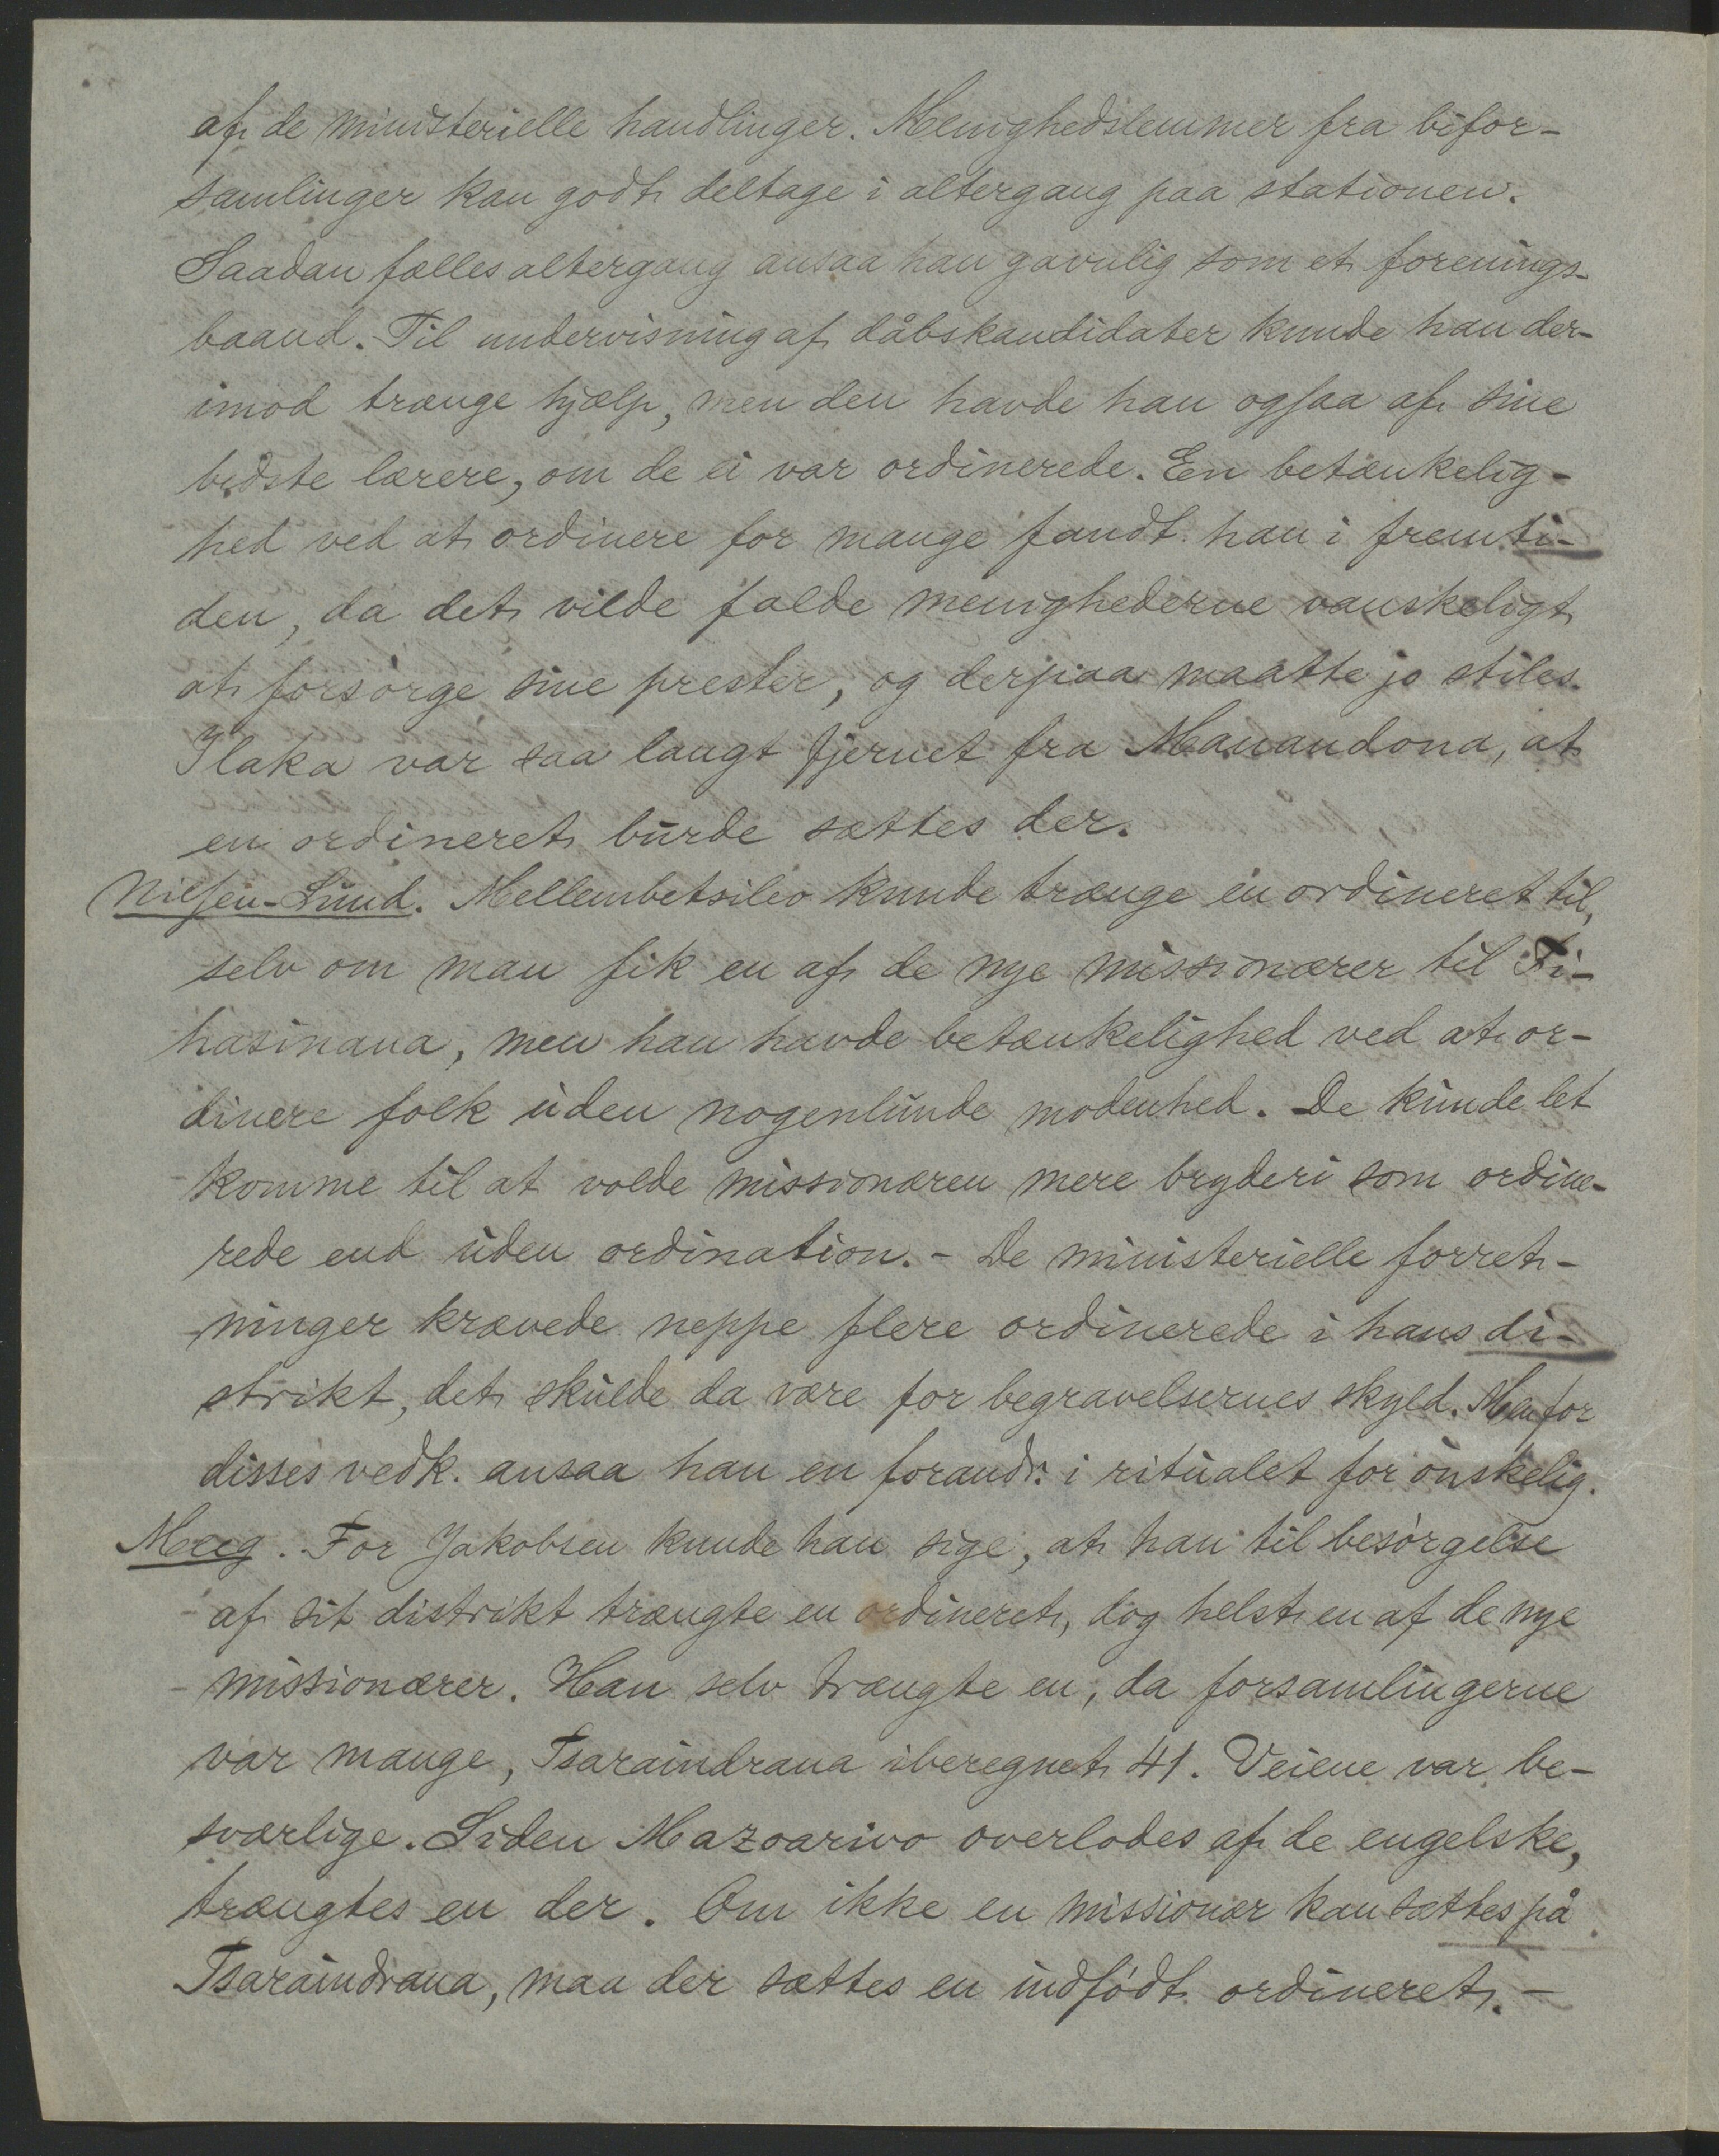 af de ministerielle handlinger. Menighedslemmer fra bifor-
samlinger kan godt deltage i altergang paa stationen.
Saadan fælles altergang ansaa han gavnlig som et forenings-
baand. Til undervisning af dåbskandidater kunde han der-
imod trænge hjælp, men den havde han ogsaa af sine
bedste lærere, om de ei var ordinerede. En betænkelig-
hed ved at ordinere for mange fandt han i fremti-
den, da det vilde falde menighederne vanskeligt
at forsørge sine prester, og derpaa maatte jo stiles.
Ilaka var saa langt fjernet fra Manandona, at
en ordineret burde sættes der.
Nilsen-Lund. Mellembetsileo kunde trænge en ordineret til,
selv om man fik en af de nye missionærer til Fi-
hasinana, men han havde betænkelighed ved at or-
dinere folk uden nogenlunde modenhed. De kunde let
komme til at volde missionæren mere bryderi som ordine-
rede end uden ordination. - De ministerielle forret-
ninger krævede neppe flere ordinerede i hans di-
strikt, det skulde da være for begravelsernes skyld. Men for
disses vedk. ansaa han en forandr. i ritualet for ønskelig.
Meeg. For Jakobsen kunde han sige, at han til besørgelse
af sit distrikt trængte en ordineret, dog helst en af de nye
missionærer. Han selv trængte en, da forsamlingerne
var mange, Tsaraindrana iberegnet 41. Veiene var be-
sværlige. Siden Mazoarivo overlodes af de engelske,
trængtes en der. Om ikke en missionær kan sættes på
Tsaraindrana, maa der sættes en indfødt ordineret. -